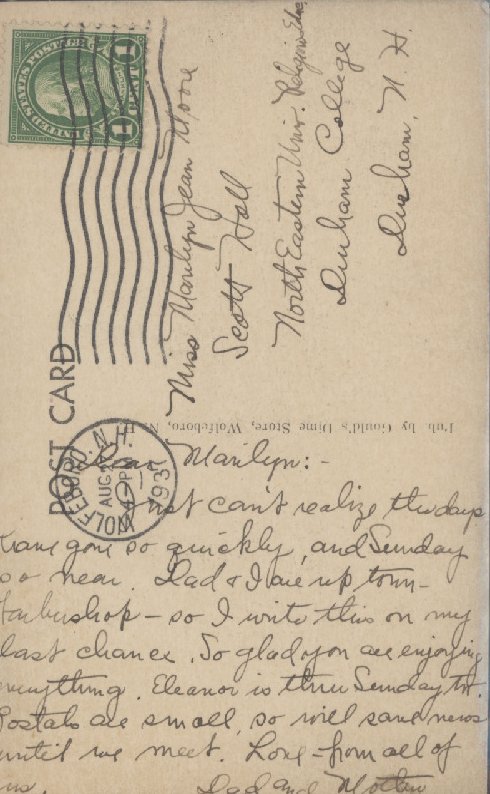 UNITED STATES POSTAGE
1 CENT 1
POST CARD
WOLFEBORO, N.H.
AUG 24
PM
1937
Miss Marilyn Jean Moore
Scott Hall
North Eastern Univ. Religious Educ
Durham College
Durham, N.H.
Pub. by Gould's Dime Store, Wolfeboro, N. H.
Dear Marilyn:-
Just can't realize the days
have gone so quickly, and Sunday
so near. Dad & I are up town-
barbershop - so I write this on my
last chance. So glad you are enjoying
everything. Eleanor is thru Sunday
Postals are small, so will save news
until we meet. Love - from all of
us. Dad and Mother